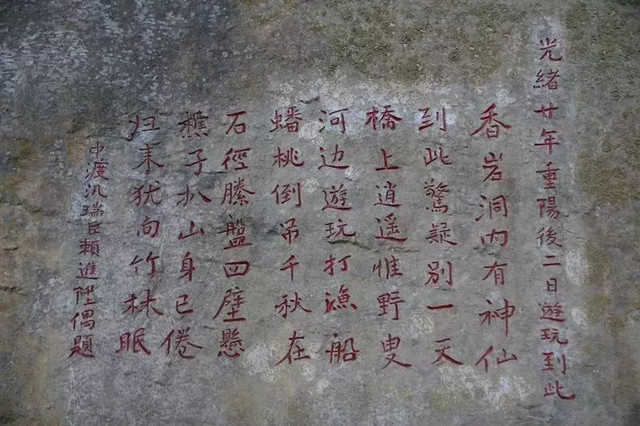 光緒廿年重陽後二日遊玩到此
香岩洞內有神仙
到此驚疑別一天
橋上逍遥惟野叟
河边遊玩打漁船
蟠桃倒吊千秋在
石徑縢盤四壁懸
樵子扒山身已倦
归来犹向竹林眠
中渡汛瑞臣賴進陞偶題